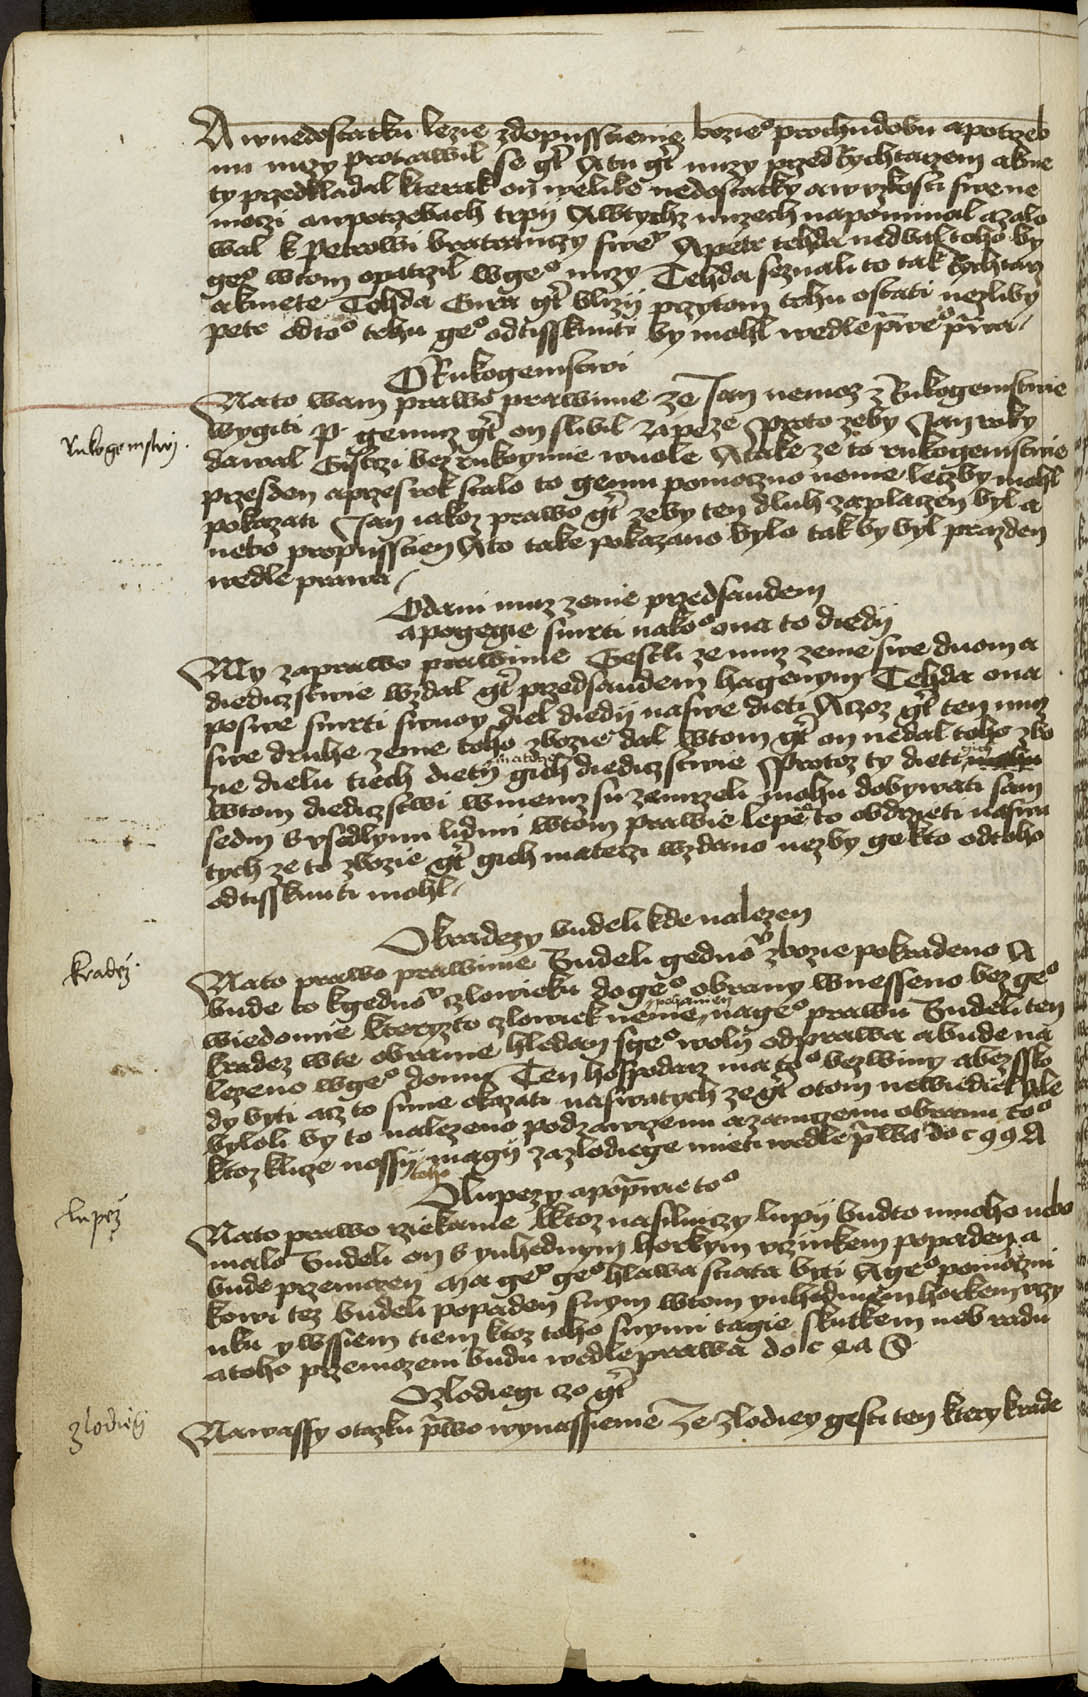 A wnedostatku lezie zdopusstienie bozie° prochudobu apotrzeb
nu nuzy protrawil se gt̃ Atu gt̃ nuzy przed Rychtarzem akme
ty przedkladal kterak on welike nedostatky awuzkosti swe ne
moczi anpotrzebach trpij Awtychz nuzech napominal azalo
wal k Petrowi bratranczy swe° Apetr tehda nedbal toho by
ge° wtom opatrzil wge° nuzy Tehda seznali to tak Rychtarz
akmete Tehda gt̃ blizij przytom trhu ostati nezliby
petr odto° trhu ge° odtisknuti by mohl wedle p̃we° p̃wa
O Rukogemstwi
Nato wam prawo prawime ze Jan nemoz z Rukogemstwie
wygiti p gemuz gt̃ on slibil zapeze proto zeby Jan roky
dawal Gistczi bez rukoymie wuole Atake ze to rukogemstwie
przesden aprzes rok stalo to gemu pomoczno neme leczby mohl
pokazati Jan iakoz prawo gt̃ zeby ten dluh zaplaczen byl a
nebo propusstien Ato take pokazano bylo tak by byl prazden
wedle prawa
Odani muz zenie przedsaudem
apogegie smrti nako° ona to diedij
My zaprawo prawime Gestli ze muz zenie swe duom a
diediczstwie wzdal gt̃ przedsaudem hagenym Tehda ona
poswe smrti swuoy diel diedij naswe dieti Aczoz gt̃ ten muz
swe druhe zenie toho zbozie dal wtom gt̃ on nedal toho zbo
zie dielu tiech dietij matdze gich diediczstwie Protoz ty dieti gich
wtom diediczstwi wniemz su zemrzeli mohu dobywati sam
sedm s vsedlymi lidmi wtom prawie lepe to obdrzeti naswa
tych ze to zbozie gt̃ gich materzi wzdano nezby ge kto odtoho
odtisknuti mohl
Okradezy budeli kde nalezen
Nato prawo prawime Budeli gedno° zbozie pokradeno A
bude to kgedno° czlowieku doge° obrany wnesseno bez ge°
wiedomie kteryzto czlowiek neme pohanien nage° prawu Budeli ten
kradez wte obranie hledan sge° wolij odprawa abude na
lezeno wge° domu Ten hospodarz ma to° bezwiny abezsslo
dy byti acz to smie okazati naswatych ze gt̃ otom newiediel Ale
byloli by to nalezeno podzawrzenu azamgenu obranu to°
ktoz klicze nossij magij zazlodiege mieti wedle p̃wa do c 99 A
toho
Olupezy apop̃wie to°
Nato prawo rziekame Ktoz nasilniczy lupij budto mnoho nebo
malo Budeli on s ynhednym horkym vczinkem popaden a
bude przemozen ma ge° ge° hlawa stiata byti Age° pomoczni
kowi tez budeli popaden snym wtom ynhednem horkem vczy
nku y wssiem tiem ktoz toho snymi tagie skutkem neb radu
atoho przemozeni budu wedle prawa do c
Ozlodiegi czo gt̃
Nawassy otazku p̃wo wynassieme Ze zlodiey gesti ten ktery krade
Rukogemstwij
kradez
lupez
zlodiegij